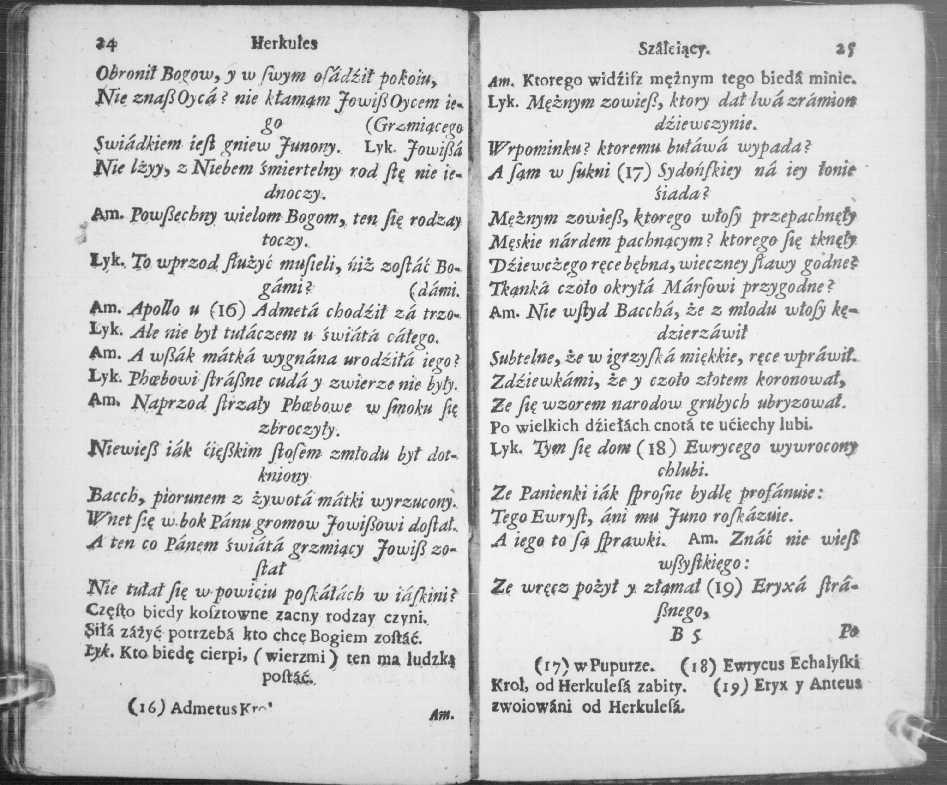 24 Herkules
Obronił Bogow, y w ſwym oſádźił pokoiu,
Nie znaß Oycá? nie kłamąm Jowiß Oycem ie-
go (Grzmiącego
Swiádkiem ieſt gniew Junony. Lyk. Jowißá
Nie lżyy, z Niebem śmiertelny rod ſtę nie ie-
dnoczy.
Am. Powßechny wielom Bogom, ten ſię rodzay
toczy.
Lyk. To wprzod ſłużyć muſieli, niż zoſtáć Bo-
gámi? (dámi.
Am. Apollo u (16) Admetá chodźił zá trzo-
Lyk. Ale nie był tułáczem u świátá cáłego.
Am. A wßák mátká wygnána urodźiłá iego?
Lyk. Phœbowi ſtráßne cudá y zwierze nie były.
Am. Naprzod ſtrzały Phœbowe w ſmoku ſię
zbroczyły.
Niewieß iák ćięßkim ſtoſem zmłodu był dot-
kniony
Bacch, piorunem z żywotá mátki wyrzucony.
Wnet ſię w bok Pánu gromow Jowißowi doſtał.
A ten co Pánem świátá grzmiący Jowiß zo-
ſtał
Nie tułał ſię w powiciu poſkáłách w iáſkini?
Częſto biedy koſztowne zacny rodzay czyni.
Siłá záżyć potrzebá kto chce Bogiem zoſtáć.
Łyk. Kto biedę cierpi, (wierzmi) ten ma ludzką
poſtáć.
(16) Admetus
Am.
Száleiący. 25
Am. Ktorego widźiſz mężnym tego biedá minie.
Lyk. Mężnym zowieß, ktory dał lwá zrámion
dźiewczynie.
Wrpominku? ktoremu bułáwá wypada?
A ſąm w ſukni (17) Sydońſkiey ná iey łonie
śiada?
Mężnym zowieß, ktorego włoſy przepachnęły
Męskie nárdem pachnącym? ktorego ſię tknęły
Dźiewczego ręce bębna, wieczney ſławy godne?
Tkąnká czoło okryłá Márſowi przygodne?
Am. Nie wſtyd Bacchá, że z młodu włoſy kę-
dzierzáwił
Subtelne, że w igrzyſká miękkie, ręce wpráwił.
Zdźiewkámi, że y czoło złotem koronował,
Ze ſię wzorem narodow grubych ubryzował.
Po wielkich dźiełách cnotá te ućiechy lubi.
Lyk. Tym ſię dom (18) Ewrycego wywrocony
chlubi.
Ze Panienki iák ſproſne bydlę profánuie:
Tego Ewryſt, áni mu Juno roſkázuie.
A iego to ſą ſprawki. Am. Znáć nie wieß
wſyſtkiego:
Ze wręcz pożył y złąmał (19) Eryxá ſtrá-
ßnego,
B 5 Po
(17) w Pupurze. (18) Ewrycus Echalyſki
Krol, od Herkuleſá zabity. (19) Eryx y Anteus
zwoiowáni od Herkuleſá.